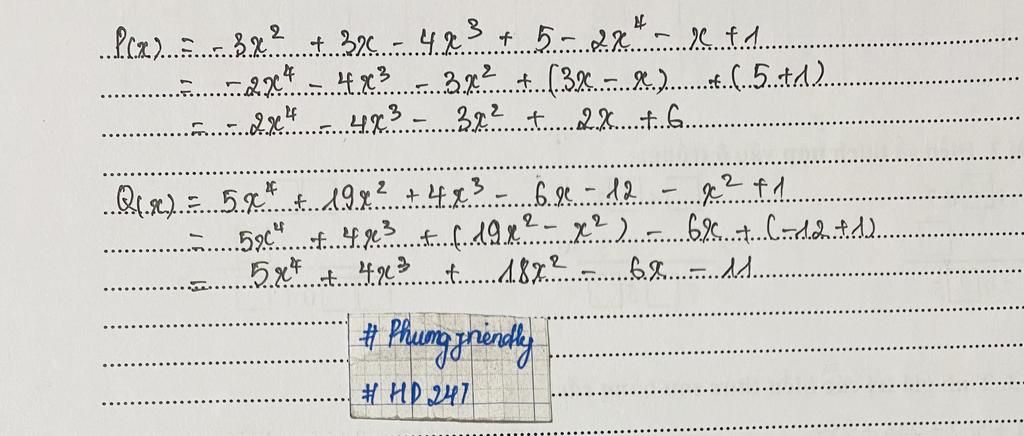 P(x) = -3x² + 3x - 4x³ + 5 - 2x⁴ - x + 1
= -2x⁴ - 4x³ - 3x² + (3x - x) + (5 + 1)
= -2x⁴ - 4x³ - 3x² + 2x + 6
Q(x) = 5x⁴ + 19x² + 4x³ - 6x - 12 - x² + 1
= 5x⁴ + 4x³ + (19x² - x²) - 6x + (-12 + 1)
= 5x⁴ + 4x³ + 18x² - 6x - 11
# Phungfriendly
# HD 247